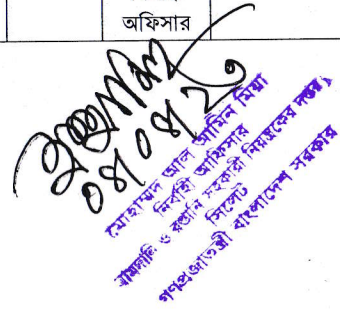 অফিসার
০৪/০৪/২৩
মোহাম্মদ আল আমিন মিয়া
নির্বাহী অফিসার
আমদানি ও রপ্তানি সহকারী নিয়ন্ত্রকের দপ্তর,
সিলেট
গণপ্রজাতন্ত্রী বাংলাদেশ সরকার